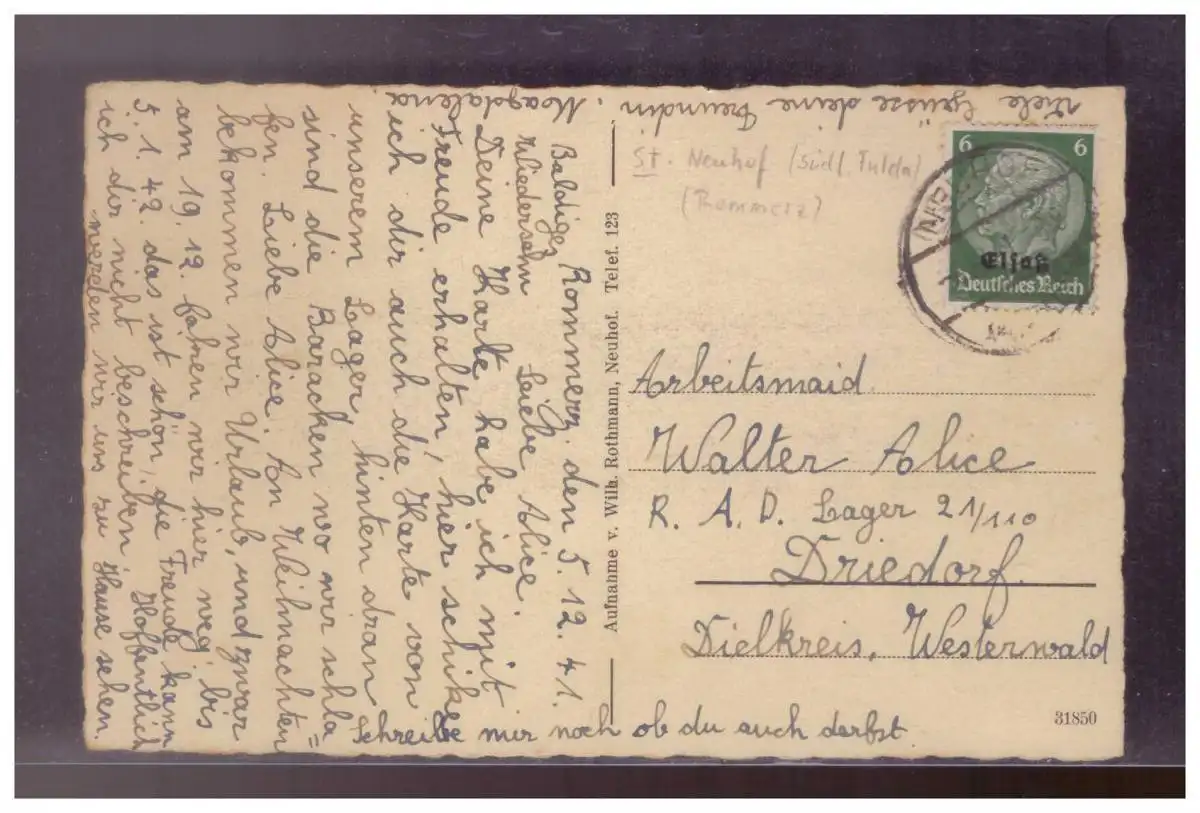 Rommerz. den 5. 12. 41.
Liebe Alice.
Deine Karte habe ich mit
Freude erhalten, hier schike
ich dir auch die Karte von
unserem Lager, hinten dran
sind die Baracken wo wir schla=
fen. Liebe Alice. An Weihnachten
bekommen wir Urlaub, und zwar
am 19. 12. fahren wir hier weg, bis
5. 1. 42. das ist schön, die Freude kann
ich dir nicht beschreiben. Hoffentlich
werden wir uns zu Hause sehen.
Schreibe mir noch ob du auch darfst
Baldiges
Wiedersehn
Viele Grüsse deine Freundin. Magdalena.
Aufnahme v. Wilh. Rothmann, Neuhof. Telef. 123
St. Neuhof (südl. Fulda)
(Rommerz)
6 6
Elsaß
Deutsches Reich
Arbeitsmaid.
Walter Alice
R. A. D. Lager 21/110
Driedorf.
Dielkreis, Westerwald
31850